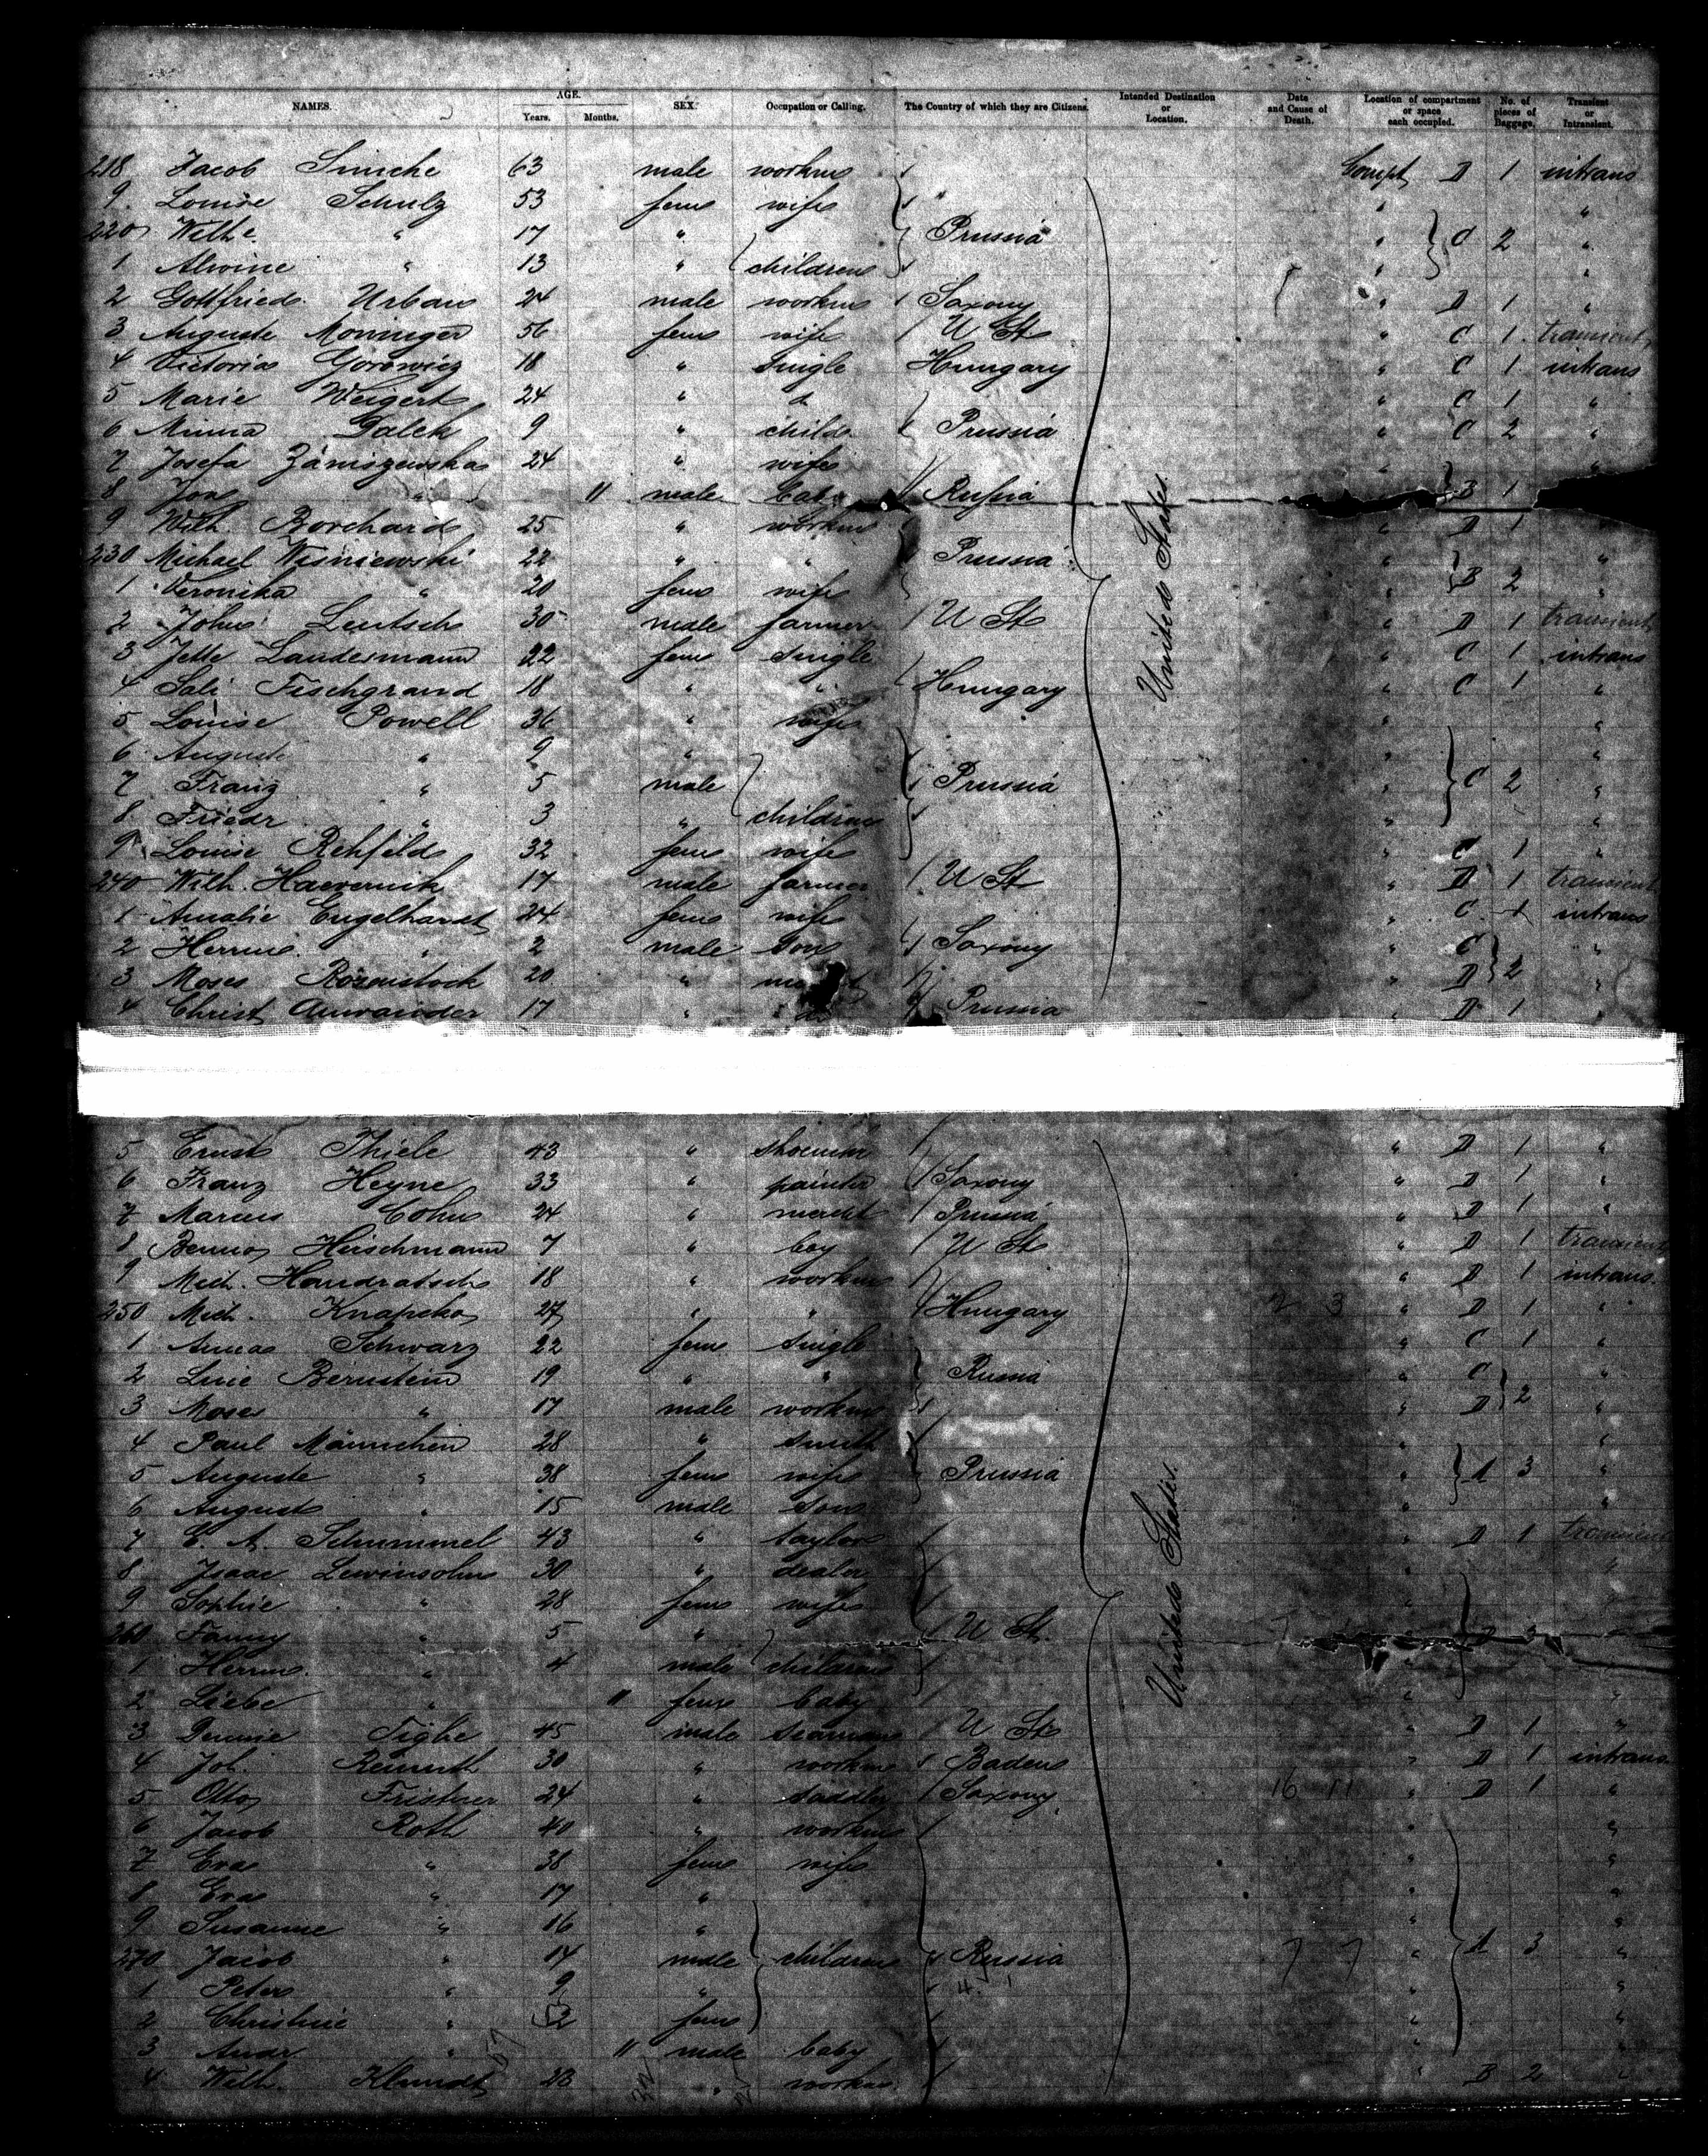 NAMES. AGE. SEX. Occupation or Calling. The Country of which they are Citizens. Intended Destination or Location. Date and Cause of Death. Location of compartment or space each occupied. No. of pieces of Baggage. Transient or Intransient.
Years. Months.
218 Jacob 63 male workm Compt D 1 intrans
9 Louise Schulz 53 fem wife " "
220 Wilhe " 17 " Prussia " C 2 "
1 Alwine " 13 " children " "
2 Gottfried Urban 24 male workm Saxony " D 1 "
3 Auguste Moninger 56 fem wife U St " C 1 transient
4 Victoria Gorowicz 18 " single Hungary " C 1 intrans
5 Marie Weigert 24 " d " C 1 "
6 Minna Galek 9 " child Prussia " C 2 "
7 Josefa Zamiszewska 24 " wife " "
8 Jon " 11 male baby Russia B 1
9 Wilh. Borchard 25 " workm " D 1 "
230 Michael Wisniewski 22 " " Prussia " B 2 "
1 Veronika " 20 fem wife "
2 John Leutsch 30 male farmer U St " D 1 transient
3 Jette Landesmann 22 fem single " C 1 intrans
4 Sali Fischgrand 18 " " Hungary " C 1 "
5 Louise Powell 36 " wife " "
6 August " 9 " " "
7 Franz " 5 male Prussia " C 2 "
8 Friedr " 3 " children " "
9 Louise Rehfeld 32 fem wife " C 1 "
240 Wilh. Haevernik 17 male farmer U St " D 1 transient
1 Amalie Engelhardt 24 fem wife " C intrans
2 Herrm. " 2 male son Saxony " C "
3 Moses Rozenstock 20 " " D 2 "
4 Christ 17 " Prussia " D 1
United States.
5 Ernst Thiele 43 " shoemm " D 1 "
6 Franz Heyne 33 " painter Saxony " D 1 "
7 Marcus Cohn 24 " mercht Prussia " D 1 "
8 Benno Hirschmann 7 " boy U St " D 1 transient
9 Mich. Handratsch 18 " workm " D 1 intrans.
250 Mich. Knapcko 27 " " Hungary 2 3 " D 1 "
1 Anna Schwarz 22 fem single " C 1 "
2 Line Bernstein 19 " " Russia " C "
3 Moses " 17 male workm " D 2 "
4 Paul Männchen 28 " smith " "
5 Auguste " 38 fem wife Prussia " A 3 "
6 August " 15 male son " "
7 C. A. Schimmel 43 " taylor D 1 transient
8 Isaac Lewinsohn 30 " dealer "
9 Sophie " 28 fem wife
260 Fanny " 5 " U St. " 3 "
1 Herrm. " 4 male children "
2 Liebe " 11 fem baby " "
3 Dennie Tighe 45 male seaman U St " D 1 "
4 Joh. 30 " workm Baden " D 1 intrans
5 Otto Fristner 24 " saddler Saxony 16 11 " D 1 "
6 Jacob Roth 40 " workm " "
7 Eva " 38 fem wife " "
8 Eva " 17 " " "
9 Susanne " 16 " " "
270 Jacob " 14 male children Russia 7 7 " A 3 "
1 Peter " 9 " " "
2 Christine " 2 fem " "
3 Andr. " 11 male baby " "
4 Wilh. Klundt 28 " workm " B 2 "
United States.